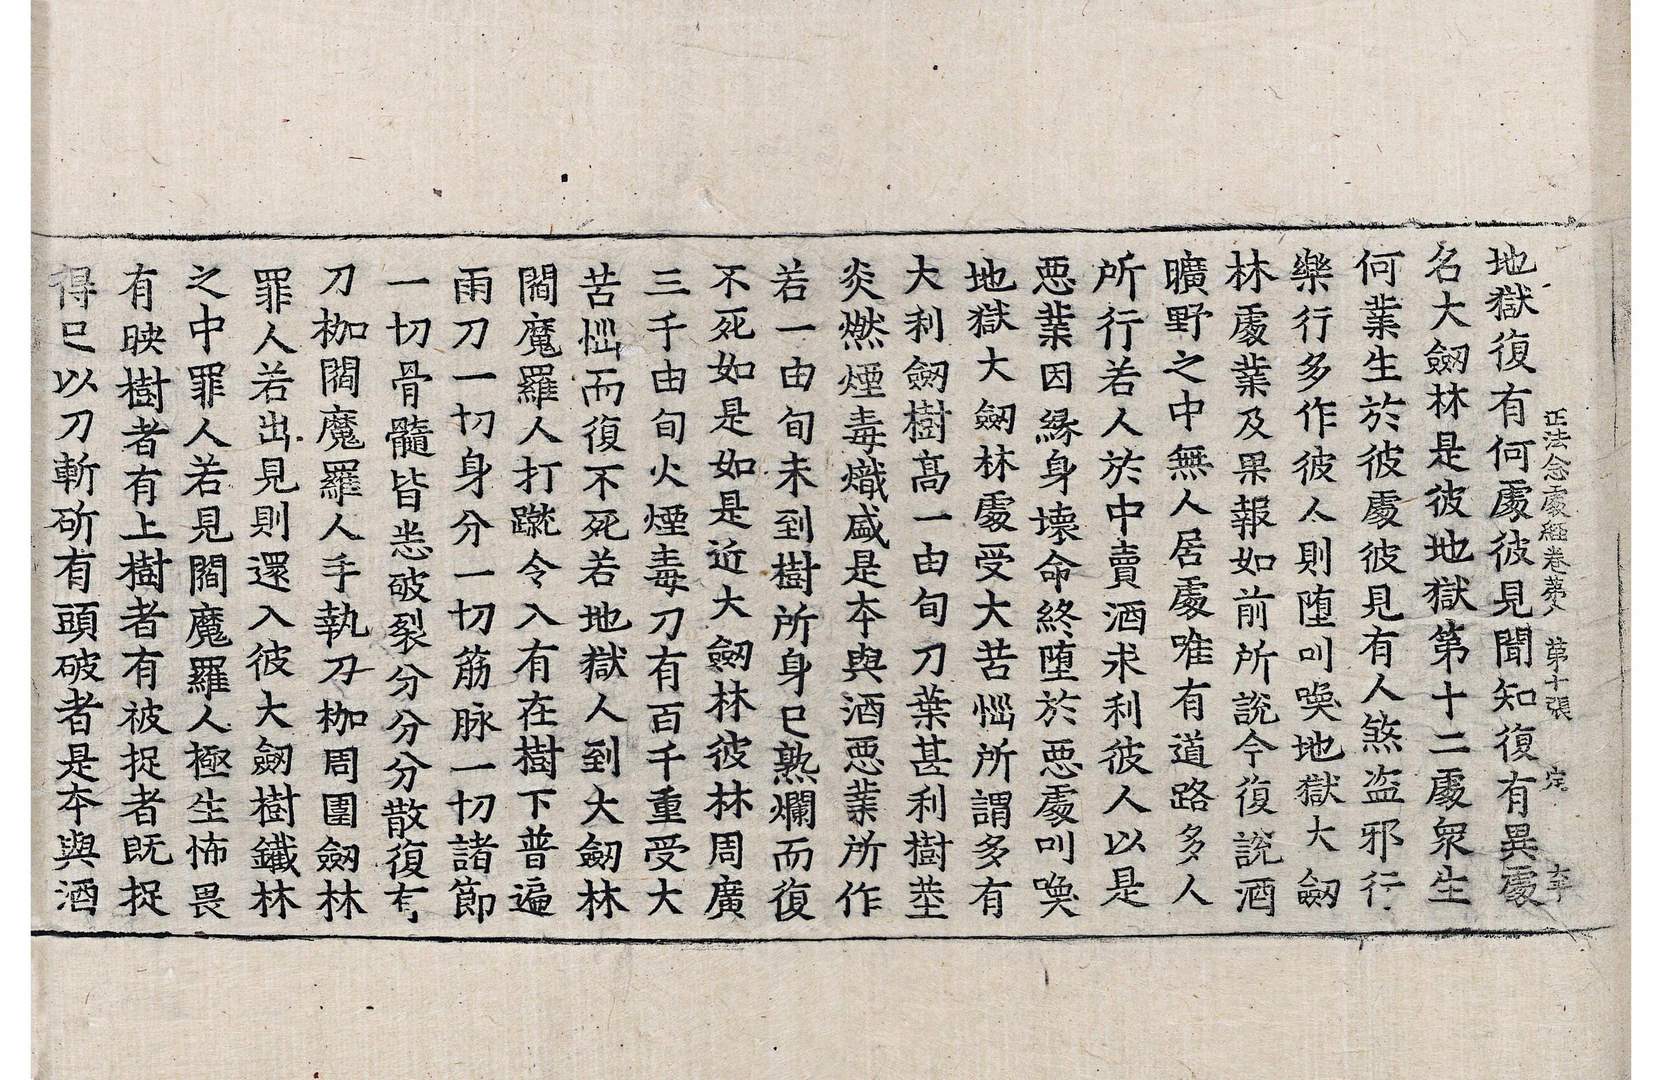 正法念處經卷第八 第十張 定
地獄復有何處彼見聞知復有異處
名大劒林是彼地獄第十二處衆生
何業生於彼處彼見有人煞盗邪行
樂行多作彼人則堕叫喚地獄大劒
林處業及果報如前所說今復說酒
曠野之中無人居處唯有道路多人
所行若人於中賣酒求利彼人以是
惡業因縁身壊命終堕於惡處叫喚
地獄大劒林處受大苦惱所謂多有
大利劒樹髙一由旬刀葉甚利樹莖
炎燃煙毒熾盛是本與酒惡業所作
若一由旬未到樹所身已熟爛而復
不死如是如是近大劒林彼林周廣
三千由旬火煙毒刀有百千重受大
苦惱而復不死若地獄人到大劒林
閻魔羅人打蹴令入有在樹下普遍
雨刀一切身分一切筋脉一切諸節
一切骨髓皆悉破裂分分分散復有
刀枷閻魔羅人手執刀枷周圍劒林
罪人若出見則還入彼大劒樹鐵林
之中罪人若見閻魔羅人極生怖畏
有映樹者有上樹者有被捉者既捉
得已以刀斬斫有頭破者是本與酒